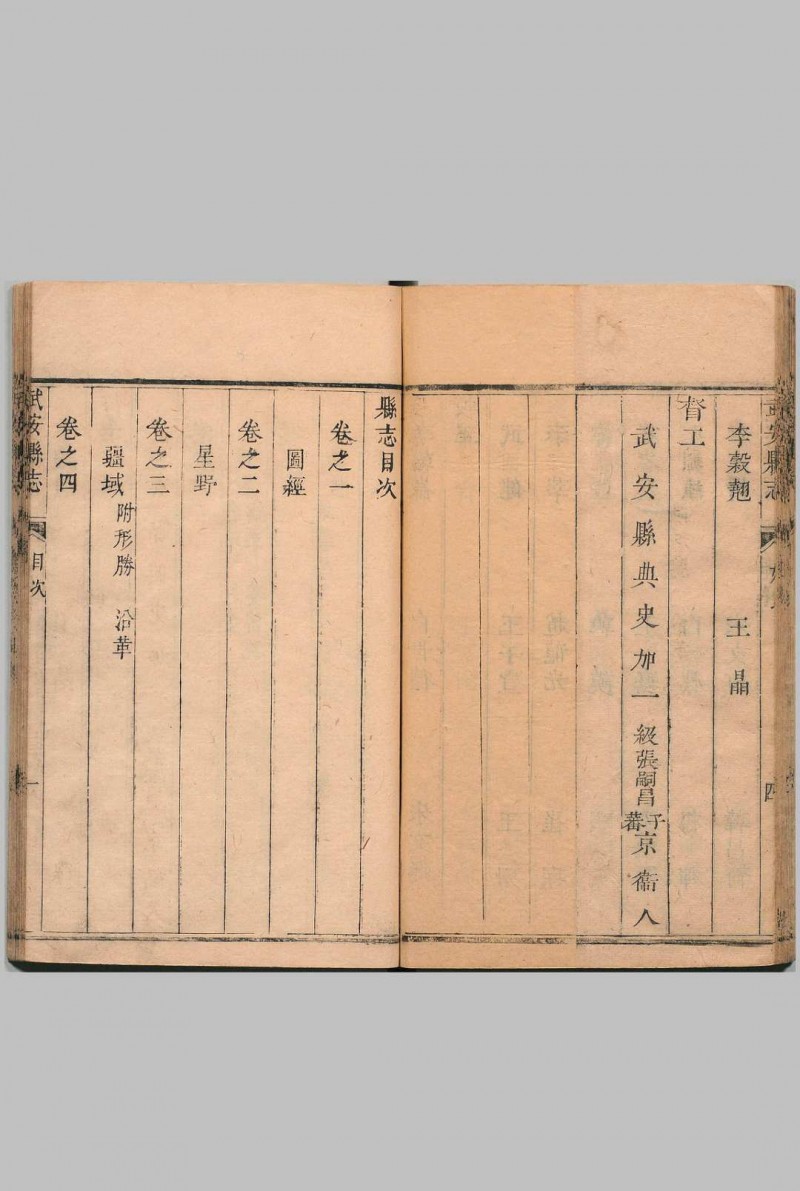 武安縣志
四
李榖翹 王晶
督工
武安縣典史加一級張嗣昌于蕃京衛人
縣志目次
卷之一
圖經
卷之二
星野
卷之三
疆域附形勝 沿革
卷之四
武安縣志 目次 一